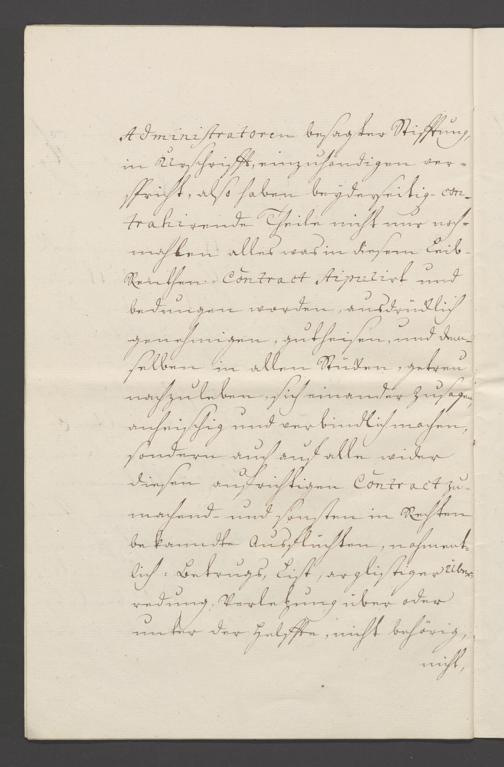 Administratoren besagter Stifftung,
in Urschrifft, einzuhändigen ver-
spricht, also haben beyderseitig- con-
trahirende Theile nicht nur noch-
mahlen alles was in diesem Leib-
Renthen- Contract stipulirt und
bedungen worden, ausdrücklich
genehmigen, gutheisen, und dem-
selben in allen Stücken, getreu
nachzuleben, sich einander zusagen,
anheischig und verbindlich machen,
sondern auch auf alle wider
diesen aufrichtigen Contract zu-
machend- und sonsten in Rechten
bekanndte Ausflüchten, nahment-
lich: Betrugs, List, arglistiger Über-
redung, Verletzung über oder
unter der Helffte, nicht behörig,
nicht,